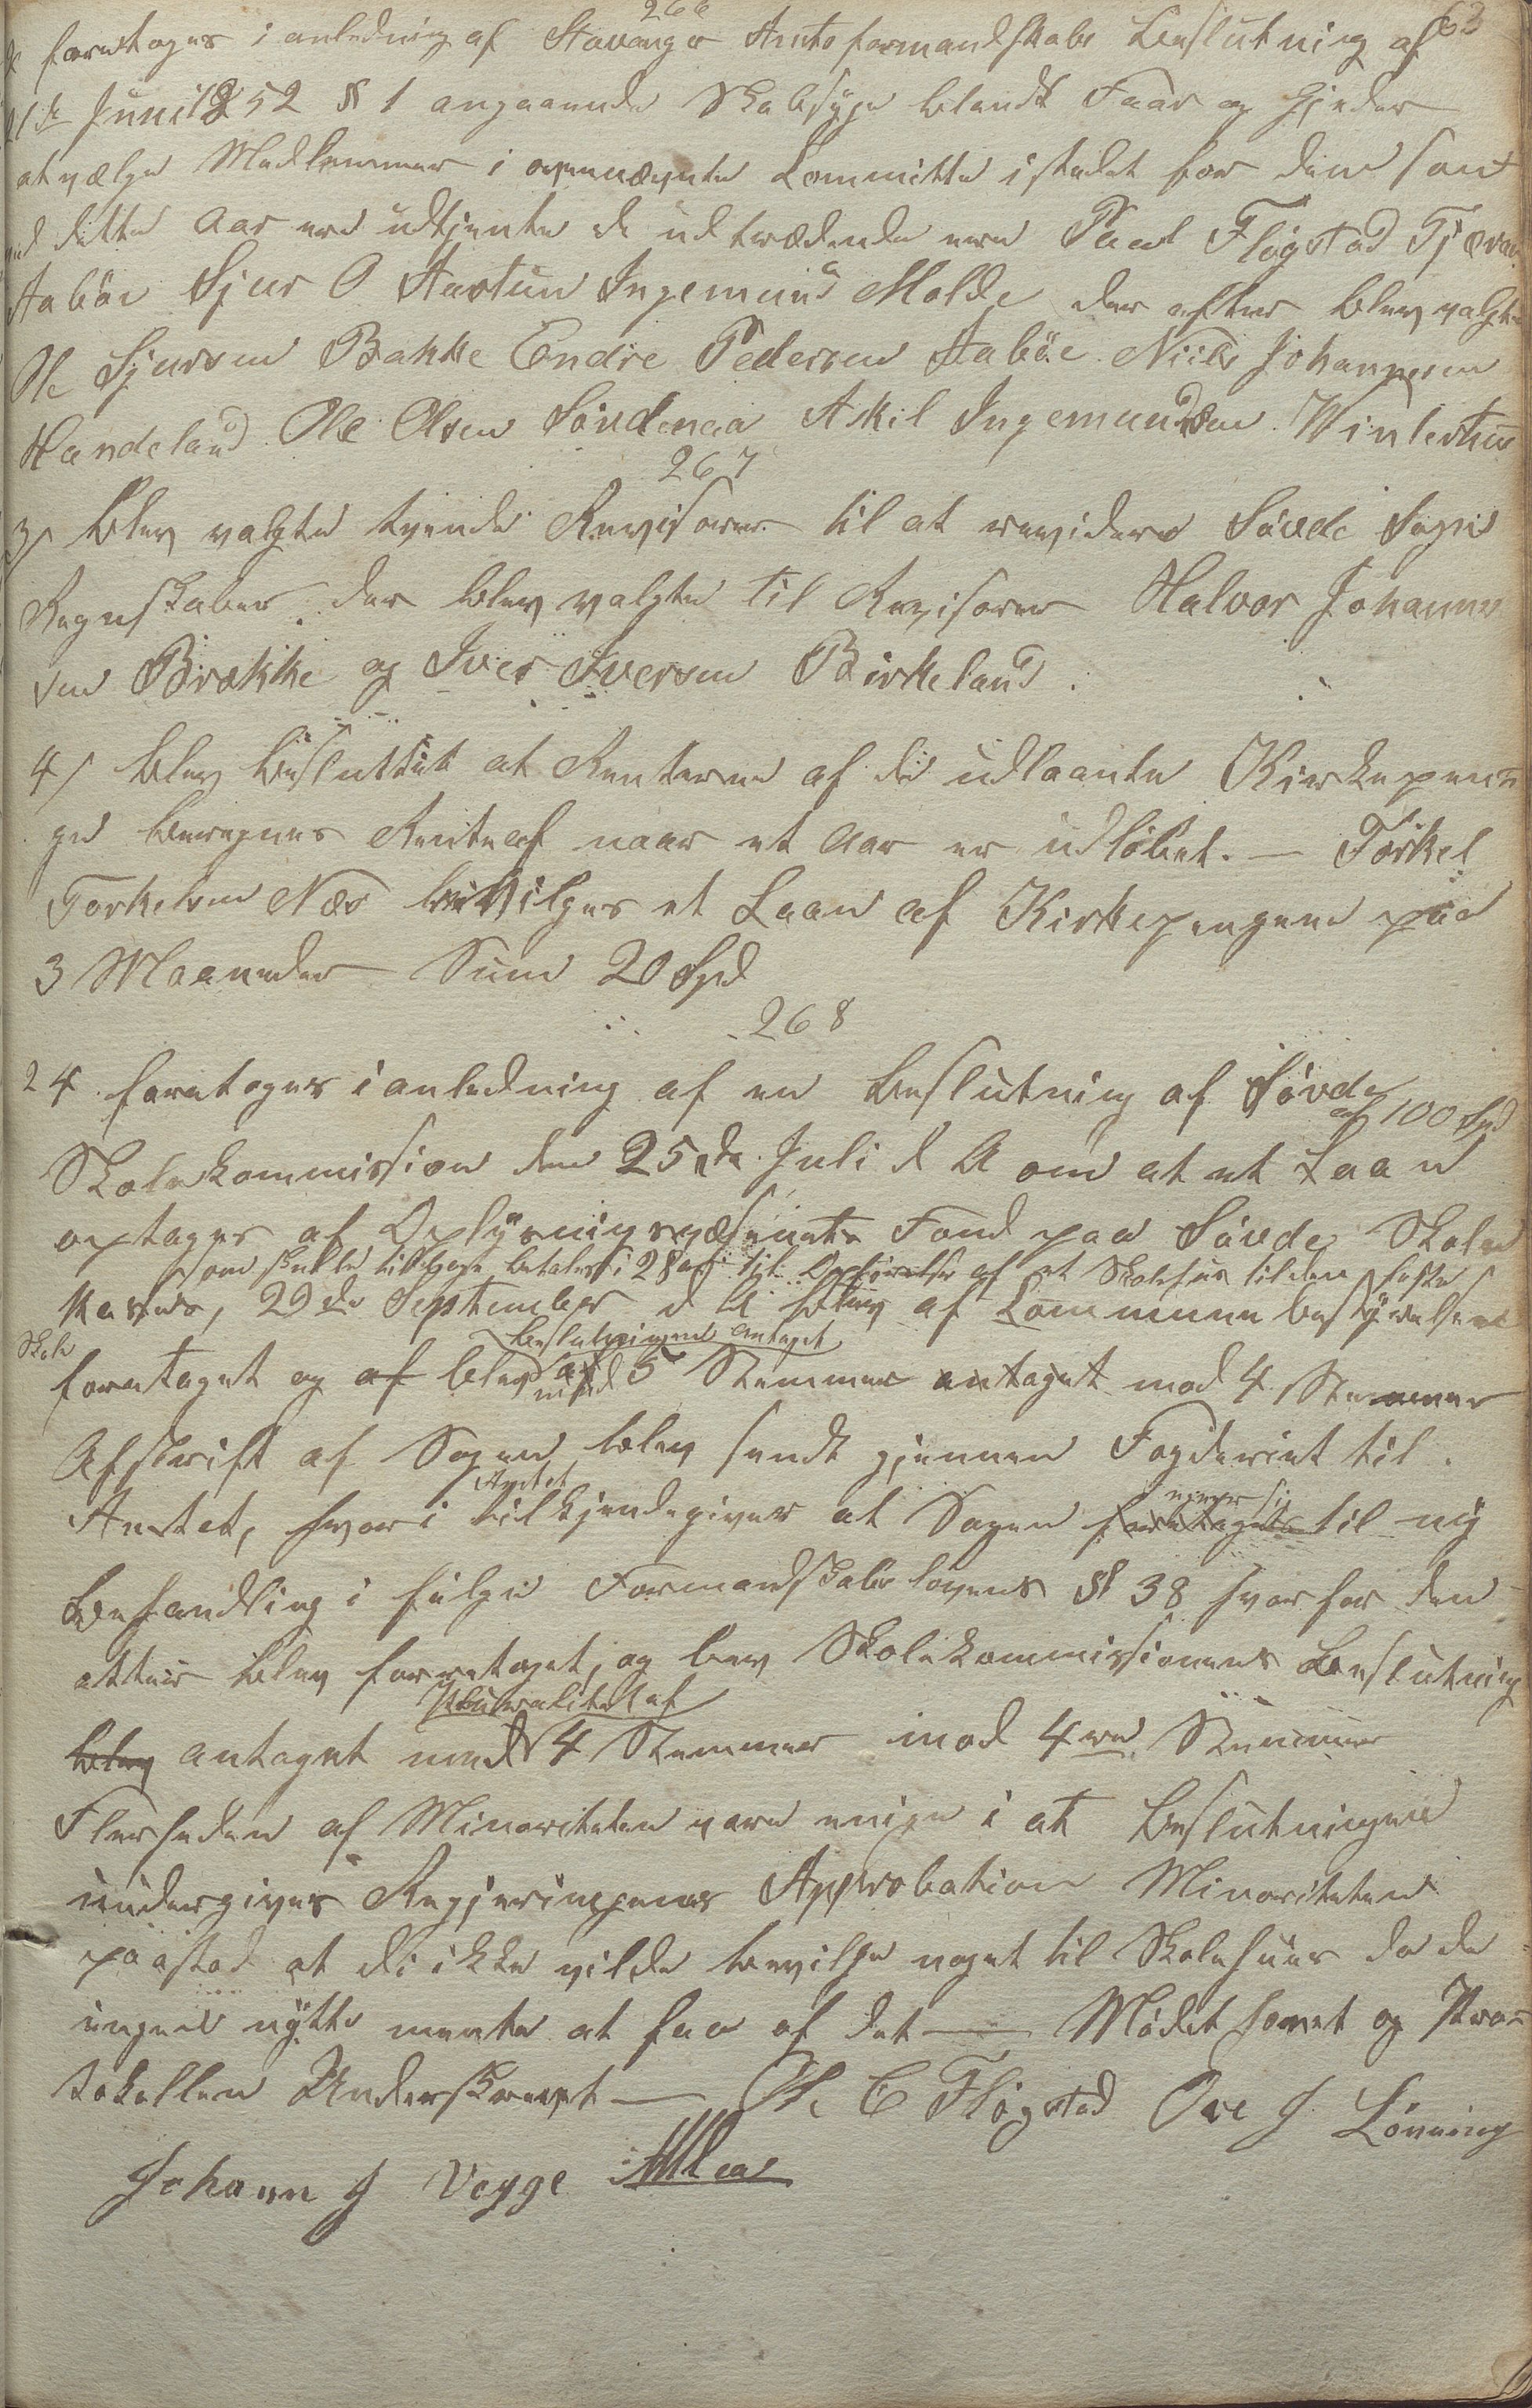 266
63
foretoges i anledning af Stavanger Amtsformandskabs Beslutning af
21de Juni 1852 § 1 angaaende Skabsyge blandt Faar og Gjeder
at vælge Medlemmer i ovennævnte Committe istedet for dem som
ved dette Aar ere udtjente de udtrædende ere Paal Fløgstad
Aabøe Sjur O Aartun Ingemund Molde der efter blev valgte
Ole Sjursen Bakke Endre Pedersen Aabøe Niels Johannesen
Handeland Ole Olsen Søndenaa Askil Ingemundsen Vinterhus
267
3/ Blev valgte tvende Revisorer til at revidere Søvde Sogns
Regnskaber der blev valgte til Revisorer Halvor Johannes
sen Brække og Iver Iversen Birkeland.
4/ blev Besluttet at Renterne af de udlaante Kirkepen-
ge beregnes Rente af naar et Aar er udløbet. — Torkel
Torkelsen Næs bevilges et Laan af Kirkepengene paa
3 Maaneder Sum 20 Spd
268
24 foretoges i anledning af en Beslutning af Søvde
af 100 Spd
Skolekommission den 25de Juli d A om at et Laan
optages af Oplysningsvæsenets Fond paa Søvde Skole
som skulle tilbage betales i 28 aar til Opførelse af et Skolehus til den faste
Kasses, 29de September d A blev af Communebestyrelsen
Skole
Beslutningen antaget
foretaget og af blev med 5 Stemmer antaget mod 4 Stemmer
Afskrift af Sagen blev sendt gjennem Fogderiet til
Amtet
Amtet, hvori tilkjendegiver at Sagen foretages til ny
Behandling i følge Formandskabslovens § 38 hvorfor den
atter blev foretaget, og blev Skolekommissionens Beslutning
Pluralitet af
blev antaget med 4 Stemmer mod 4re Stemmer
Flerheden af Minoriteten vare enige i at Beslutningen
undergives Regjeringens Approbation Minoriteten
paastod at de ikke vilde bevilge noget til Skolehuus da de
ingen nytte mente at faa af det — Mødet hævet og Pro-
tokollen Underskrevet — Ole C Fløgstad Ove J. Lønning
Johann J Vegge